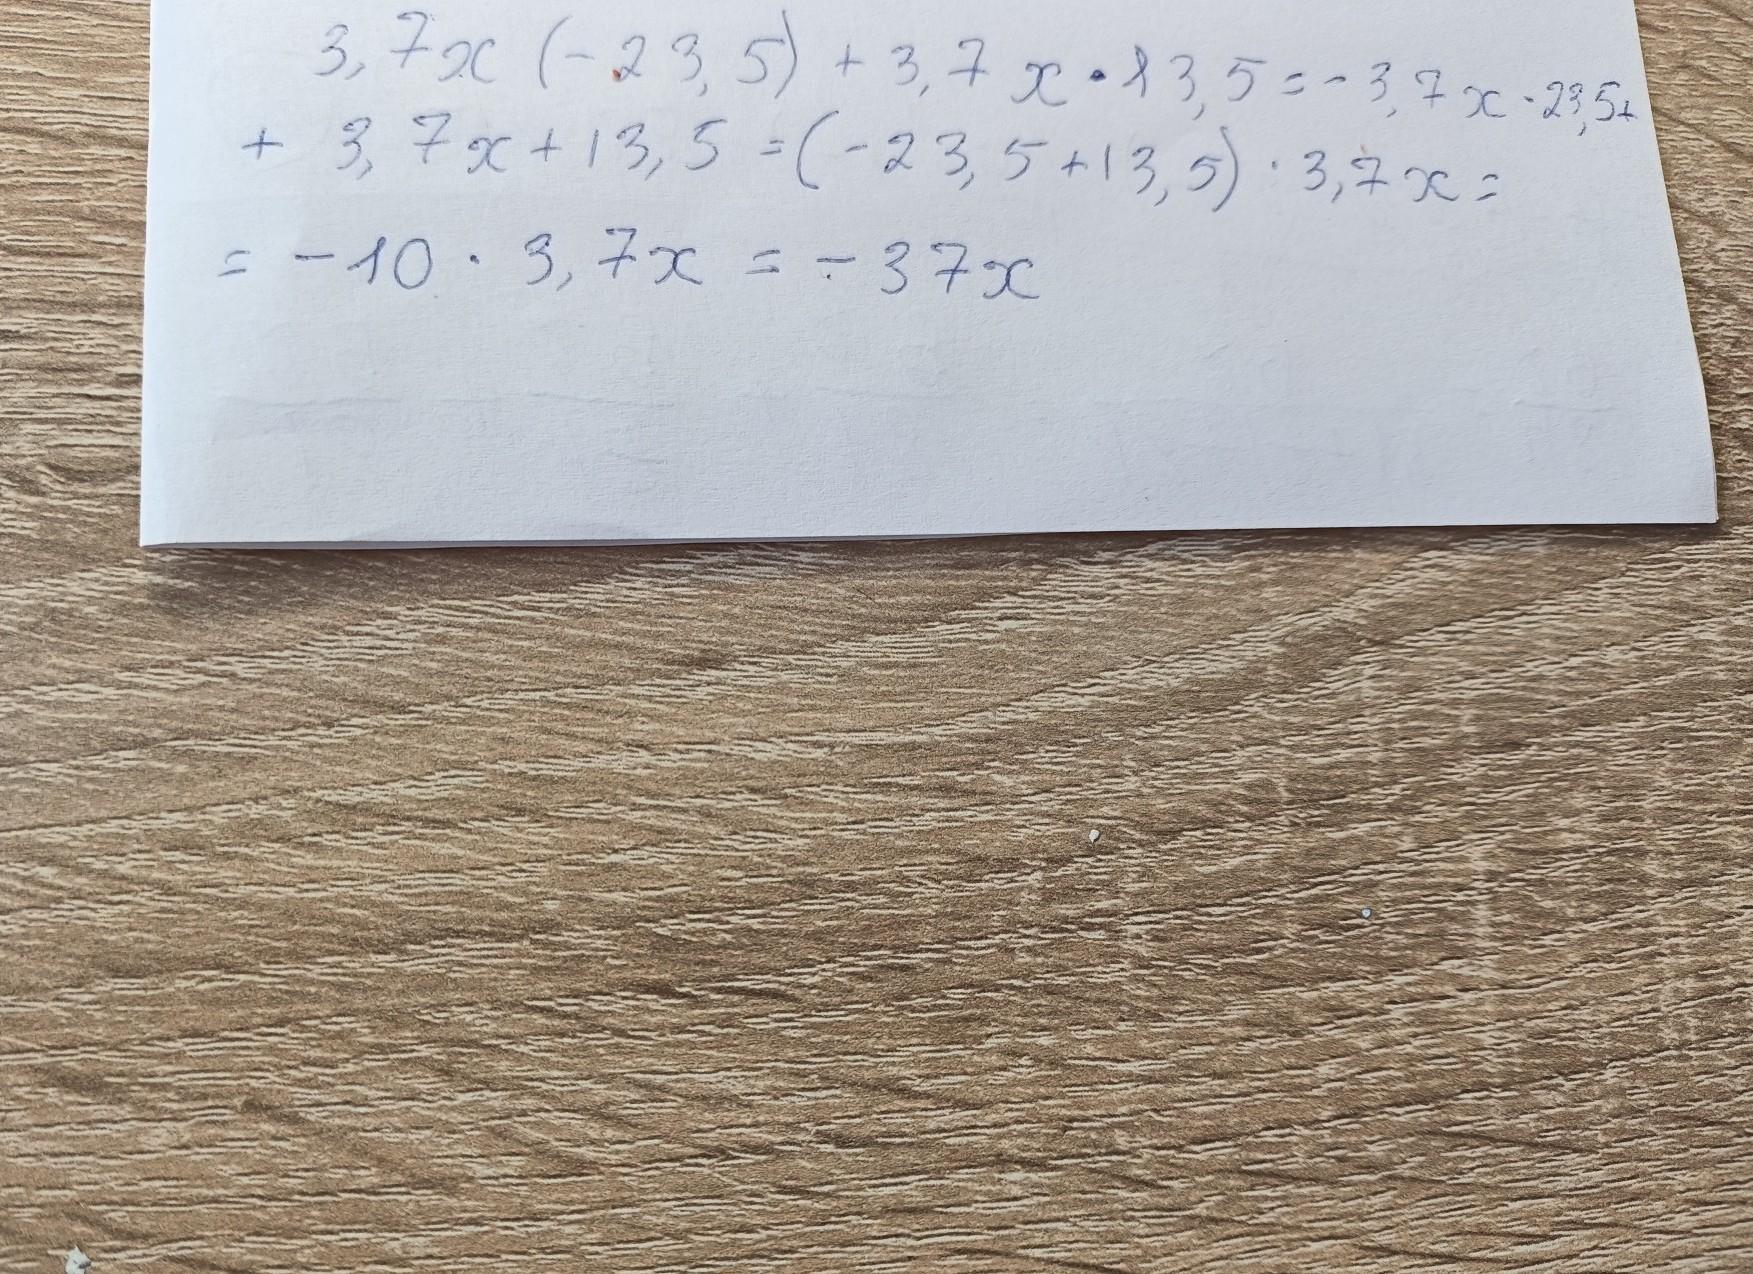 3,7x (-23,5) + 3,7x • 13,5 = - 3,7x · 23,5+
+ 3,7x + 13,5 = (-23,5 + 13,5) · 3,7x =
= -10 · 3,7x = - 37x